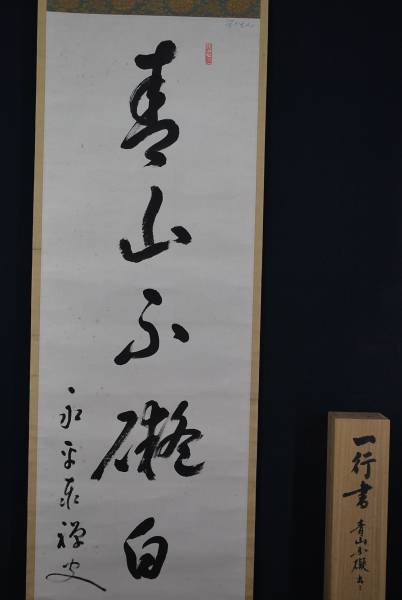 青山不礙白
永平泰禅叟
一行書
青山不礙